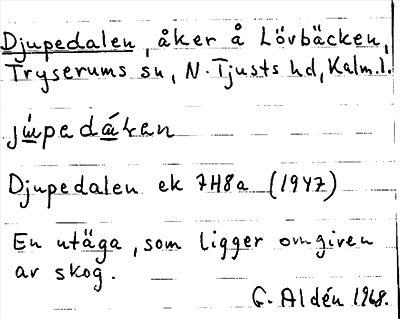 Djupedalen, åker å Lövbäcken,
Tryserums sn, N. Tjusts hd, Kalm.l.
júpedáḷen
Djupedalen ek 7H8a (1947)
En utäga, som ligger omgiven
av skog.
G. Aldén 1968.